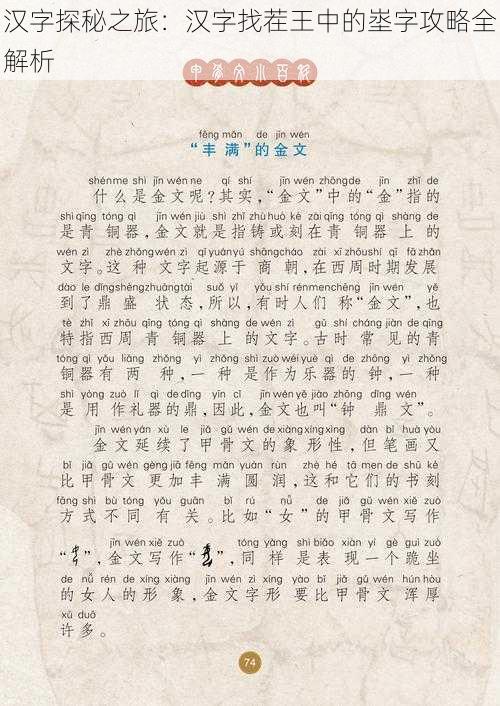 汉字探秘之旅：汉字找茬王中的埊字攻略全
解析
中华文化百科
fēng mǎn de jīn wén
“丰满”的金文
shén me shì jīn wén ne qí shí jīn wén zhōng de jīn zhǐ de
什么是金文呢？其实，“金文”中的“金”指的
shì qīng tóng qì jīn wén jiù shì zhǐ zhù huò kè zài qīng tóng qì shàng de
是青铜器，金文就是指铸或刻在青铜器上的
wén zì zhè zhǒng wén zì qǐ yuán yú shāng cháo zài xī zhōu shí qī fā zhǎn
文字。这种文字起源于商朝，在西周时期发展
dào le dǐng shèng zhuàng tài suǒ yǐ yǒu shí rén men chēng jīn wén yě
到了鼎盛状态，所以，有时人们称“金文”，也
tè zhǐ xī zhōu qīng tóng qì shàng de wén zì gǔ shí cháng jiàn de qīng
特指西周青铜器上的文字。古时常见的青
tóng qì yǒu liǎng zhǒng yì zhǒng shì zuò wéi yuè qì de zhōng yì zhǒng
铜器有两种，一种是作为乐器的钟，一种
shì yòng zuò lǐ qì de dǐng yīn cǐ jīn wén yě jiào zhōng dǐng wén
是用作礼器的鼎，因此，金文也叫“钟鼎文”。
jīn wén yán xù le jiǎ gǔ wén de xiàng xíng xìng dàn bǐ huà yòu
金文延续了甲骨文的象形性，但笔画又
bǐ jiǎ gǔ wén gèng jiā fēng mǎn yuán rùn zhè hé tā men de shū kè
比甲骨文更加丰满圆润，这和它们的书刻
fāng shì bù tóng yǒu guān bǐ rú nǚ de jiǎ gǔ wén xiě zuò
方式不同有关。比如“女”的甲骨文写作
jīn wén xiě zuò tóng yàng shì biǎo xiàn yí gè guì zuò
“ ”，金文写作“ ”，同样是表现一个跪坐
de nǚ rén de xíng xiàng jīn wén zì xíng yào bǐ jiǎ gǔ wén hún hòu
的女人的形象，金文字形要比甲骨文浑厚
xǔ duō
许多。
74